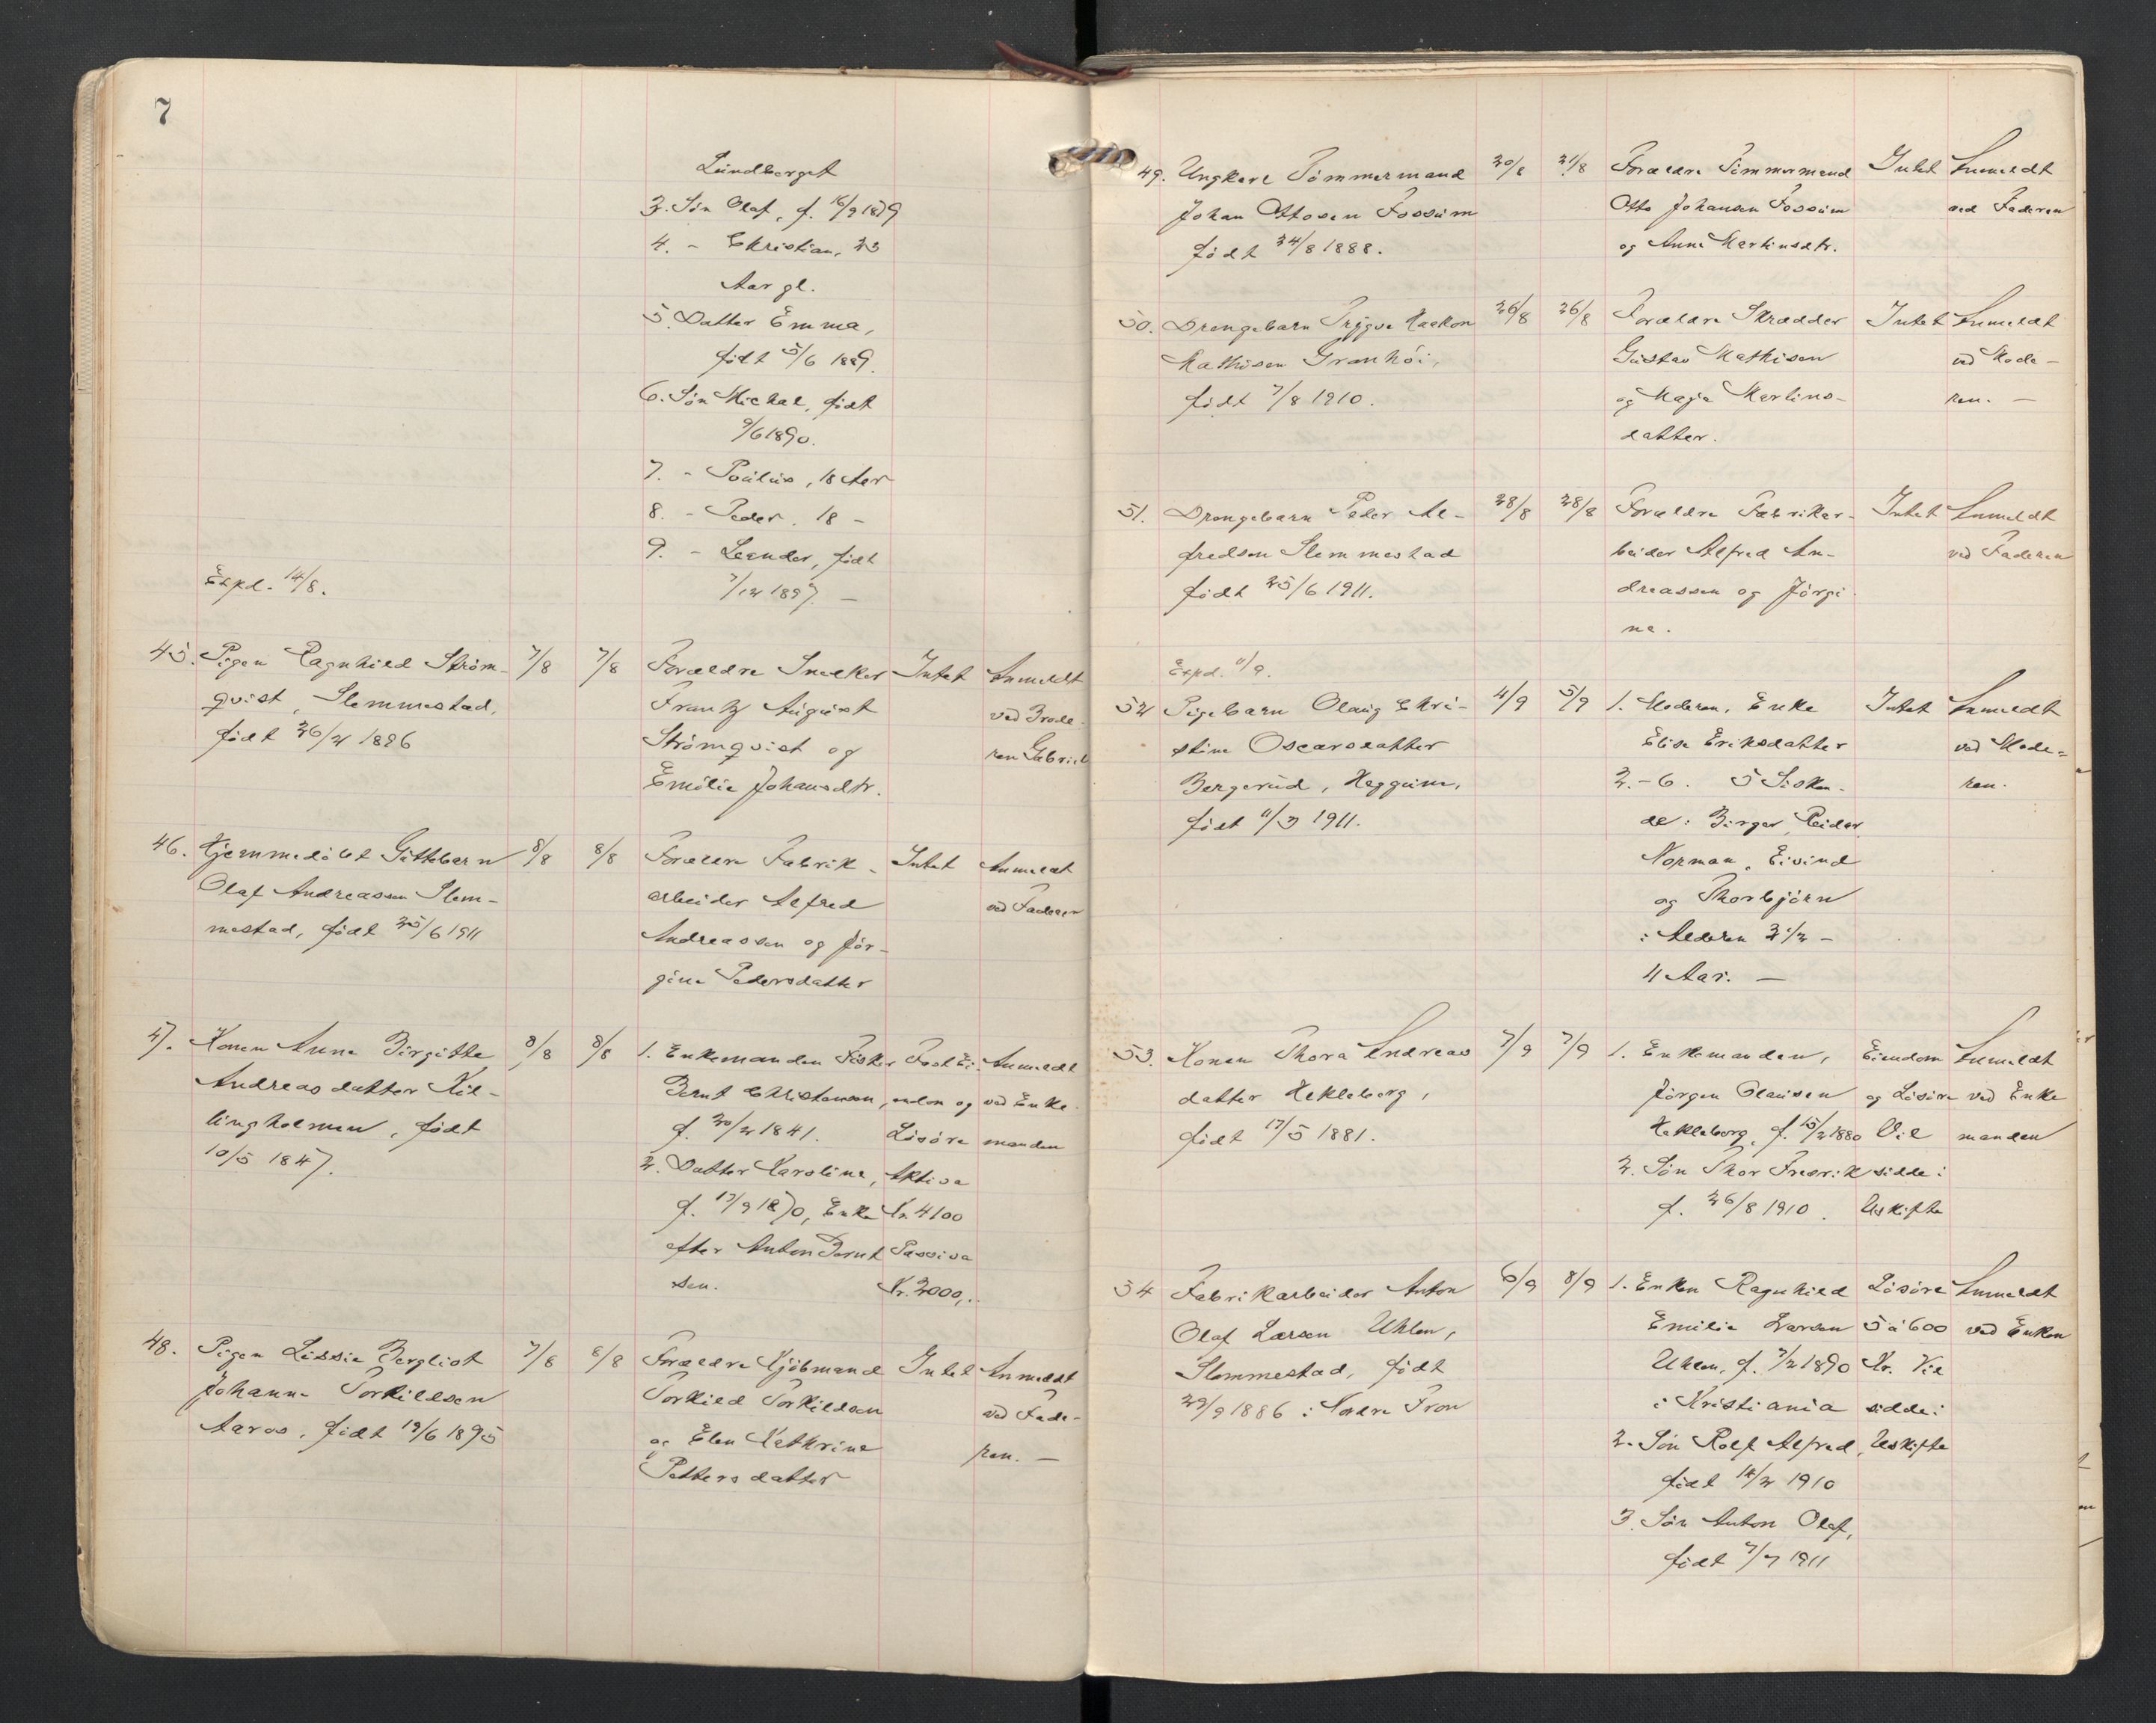 7
Lundberget
3. Søn Olaf, f. 16/9 1879
4. - Christian, 23
Aar gl.
5. Datter Emma,
født 5/6 1889.
6. Søn Michal, født
9/6 1890.
7. - Paulus, 18 Aar
8. - Peder, 18 -
9. - Leander, født
7/12 1897. —
Expd. 14/8.
45. Pigen Ragnhild Ström- 7/8 7/8 Forældre Snedker Intet Anmeldt
qvist, Slemmestad, Frantz August ved Brode-
født 26/2 1896 Strömqvist og ren Gabriel
Emilie Johansdtr.
46. Hjemmedöbt Guttebarn 8/8 8/8 Forældre Fabrik- Intet Anmeldt
Olaf Andreassen Slem- arbeider Alfred ved Faderen
mestad, født 25/6 1911 Andreassen og Jör-
gine Pedersdatter
47. Konen Anne Birgitte 8/8 8/8 1. Enkemanden Fisker Fast Ei- Anmeldt
Andreasdatter Kil- Bernt Christensen, endom og ved Enke-
lingholmen, født f. 20/2 1841. Lösöre manden
10/5 1847. 2. Datter Karoline, Aktiva
f. 17/9 1870, Enke Kr. 4100
efter Anton Bernt- Passiva
sen. Kr. 2000,..
48. Pigen Lissie Bergliot 7/8 8/8 Forældre Kjöbmand Intet Anmeldt
Johanne Torkildsen Torkild Torkildsen ved Fade-
Aaros, født 19/6 1895 og Elen Kathrine ren. —
Pettersdatter
49. Ungkarl Tömmermand 20/8 21/8 Forældre Tömmermand Intet Anmeldt
Johan Ottosen Fossum Otto Johansen Fossum ved Faderen
født 24/8 1888. og Anne Martinsdtr.
50. Drengebarn Trygve Haakon 26/8 26/8 Forældre Skrædder Intet Anmeldt
Mathisen Granhöi, Gustav Mathisen ved Mode-
født 7/8 1910. og Maja Martins- ren. —
datter.
51. Drengebarn Peder Al- 28/8 28/8 Forældre Fabrikar- Intet Anmeldt
fredsen Slemmestad beider Alfred An- ved Faderen
født 25/6 1911. dreassen og Jörgi-
ne.
Expd. 11/9.
52 Pigebarn Olaug Chri- 4/9 5/9 1. Moderen, Enke Intet Anmeldt
stine Oscarsdatter Elise Eriksdatter ved Mode-
Bergerud, Heggum, 2.-6. 5 Sösken- ren.
født 11/3 1911. de: Birger, Reidar
Norman, Eivind
og Thorbjörn
i Alderen 2 1/2 -
11 Aar. —
53. Konen Thora Andreas 7/9 7/9 1. Enkemanden, Eiendom Anmeldt
datter Hekleberg, Jörgen Olausen og Lösöre ved Enke
født 17/5 1881. Hekleberg, f. 15/2 1880 Vil manden
2. Søn Thor Fredrik sidde i
f. 26/8 1910. Uskifte
54 Fabrikarbeider Anton 6/9 8/9 1. Enken Ragnhild Lösöre Anmeldt
Olaf Larsen Uhlen, Emilie Larsen 5 à 600 ved Enken
Slemmestad, født Uhlen, f. 7/2 1890 Kr. Vil
29/9 1886 i Nordre Fron i Kristiania sidde i
2. Søn Rolf Alfred, Uskifte
født 18/2 1910
3. Søn Anton Olaf,
født 7/7 1911